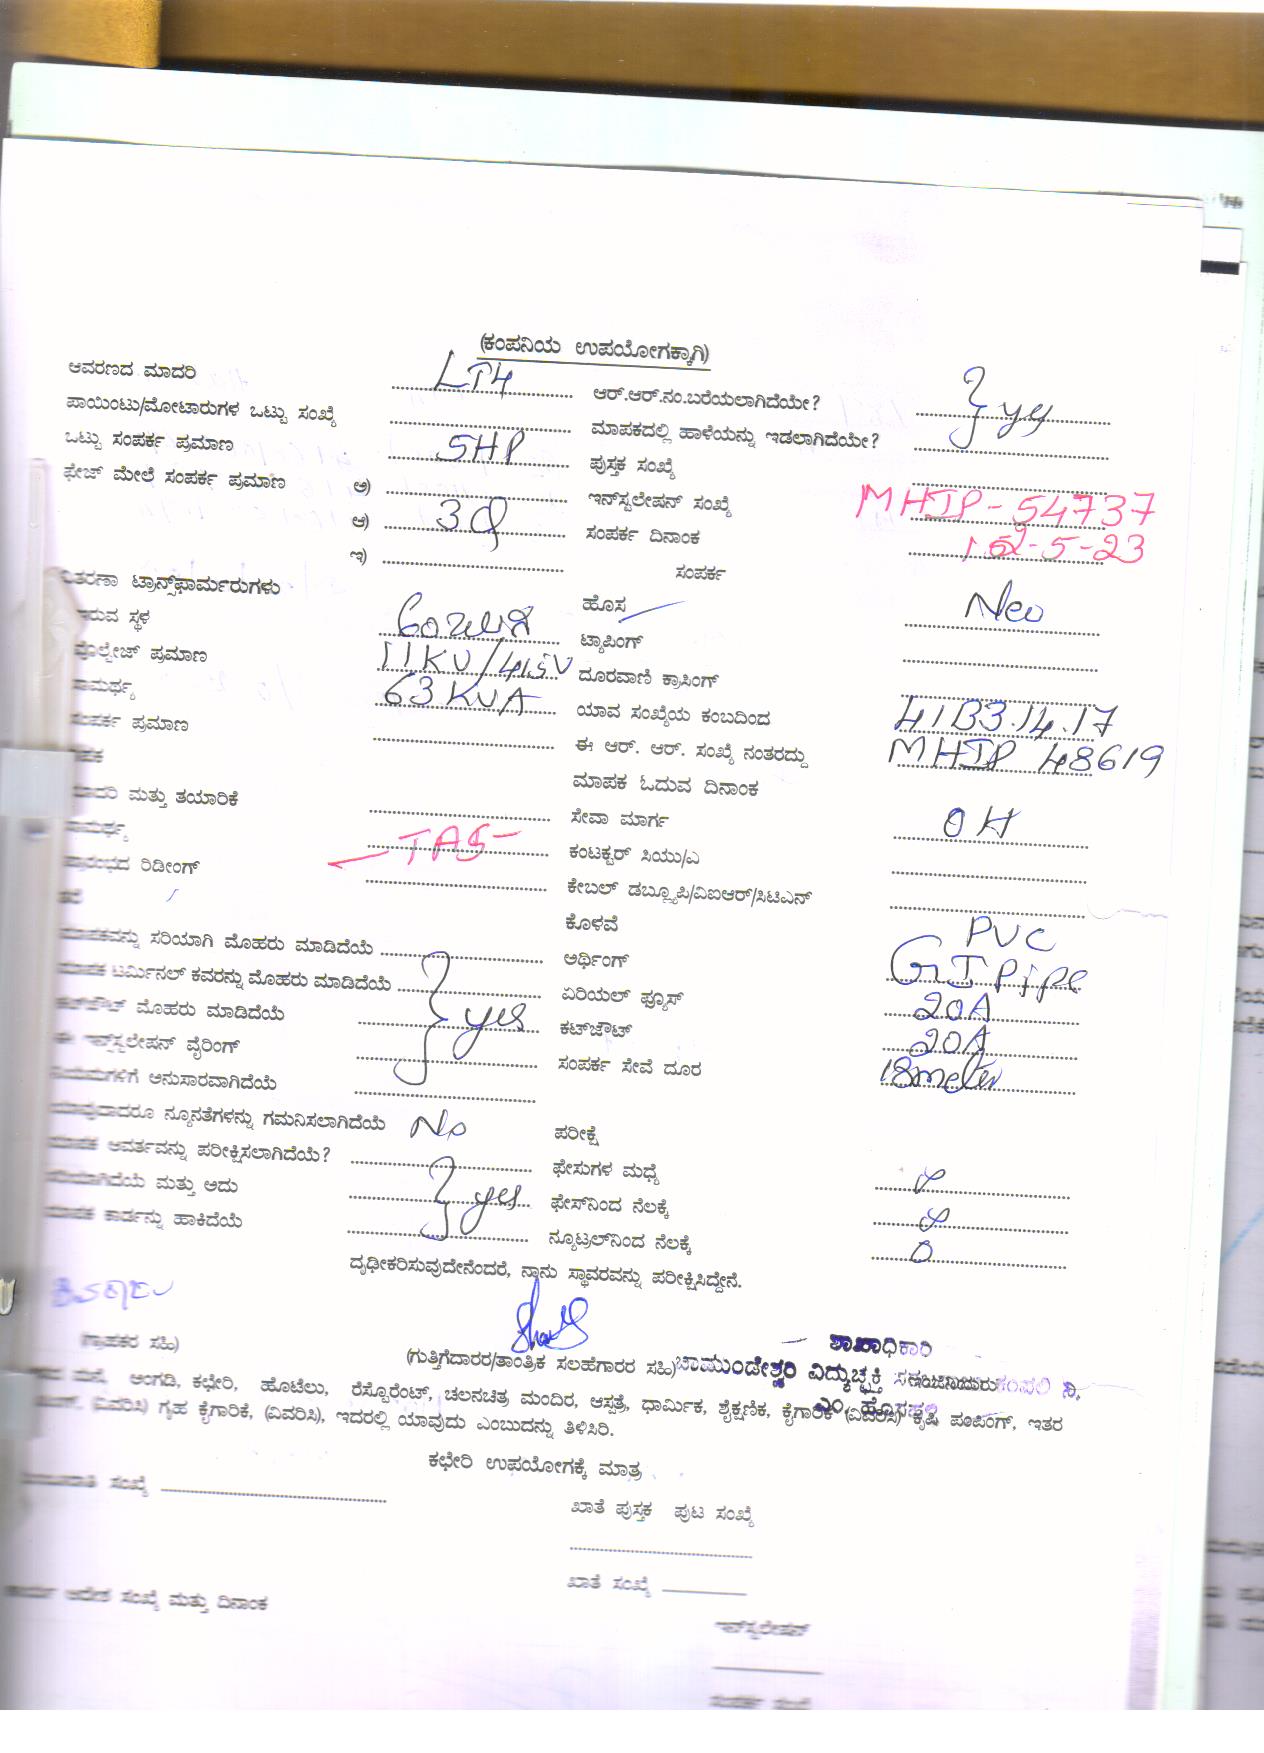 (ಕಂಪನಿಯ ಉಪಯೋಗಕ್ಕಾಗಿ)
ಆವರಣದ ಮಾದರಿ LT4 ಆರ್.ಆರ್.ನಂ.ಬರೆಯಲಾಗಿದೆಯೇ? } yes
ಪಾಯಿಂಟು/ಮೋಟಾರುಗಳ ಒಟ್ಟು ಸಂಖ್ಯೆ ಮಾಪಕದಲ್ಲಿ ಹಾಳೆಯನ್ನು ಇಡಲಾಗಿದೆಯೇ?
ಒಟ್ಟು ಸಂಪರ್ಕ ಪ್ರಮಾಣ 5HP ಪುಸ್ತಕ ಸಂಖ್ಯೆ
ಫೇಜ್ ಮೇಲೆ ಸಂಪರ್ಕ ಪ್ರಮಾಣ ಅ) ಇನ್‌ಸ್ಟಲೇಷನ್ ಸಂಖ್ಯೆ MHIP-54737
ಆ) 3φ ಸಂಪರ್ಕ ದಿನಾಂಕ -5-23
ಇ) ಸಂಪರ್ಕ
ವಿತರಣಾ ಟ್ರಾನ್ಸ್‌ಫಾರ್ಮರುಗಳು ಹೊಸ New
ಇರುವ ಸ್ಥಳ ಟ್ಯಾಪಿಂಗ್
ವೋಲ್ಟೇಜ್ ಪ್ರಮಾಣ 11KV/415V ದೂರವಾಣಿ ಕ್ರಾಸಿಂಗ್
ಸಾಮರ್ಥ್ಯ 63 KVA ಯಾವ ಸಂಖ್ಯೆಯ ಕಂಬದಿಂದ 41B3.14.17
ಸಂಪರ್ಕ ಪ್ರಮಾಣ ಈ ಆರ್. ಆರ್. ಸಂಖ್ಯೆ ನಂತರದ್ದು MHIP 48619
ಮಾಪಕ ಮಾಪಕ ಓದುವ ದಿನಾಂಕ
ಮಾದರಿ ಮತ್ತು ತಯಾರಿಕೆ ಸೇವಾ ಮಾರ್ಗ OH
ಸಾಮರ್ಥ್ಯ TAS ಕಂಟಕ್ಟರ್ ಸಿಯು/ಎ
ಪ್ರಾರಂಭದ ರಿಡೀಂಗ್ ಕೇಬಲ್ ಡಬ್ಲ್ಯೂಪಿ/ವಿಐಆರ್/ಸಿಟಿಎನ್
ಕೊಳವೆ PVC
ಮಾಪಕವನ್ನು ಸರಿಯಾಗಿ ಮೊಹರು ಮಾಡಿದೆಯೆ ಅರ್ಥಿಂಗ್ GI Pipe
ಮಾಪಕ ಟರ್ಮಿನಲ್ ಕವರನ್ನು ಮೊಹರು ಮಾಡಿದೆಯೆ ಏರಿಯಲ್ ಫ್ಯೂಸ್ 20A
ಕಟ್‌ಔಟ್ ಮೊಹರು ಮಾಡಿದೆಯೆ } yes ಕಟ್‌ಔಟ್ 20A
ಈ ಇನ್‌ಸ್ಟಲೇಷನ್ ವೈರಿಂಗ್ ಸಂಪರ್ಕ ಸೇವೆ ದೂರ 18meter
ನಿಯಮಗಳಿಗೆ ಅನುಸಾರವಾಗಿದೆಯೆ
ಯಾವುದಾದರೂ ನ್ಯೂನತೆಗಳನ್ನು ಗಮನಿಸಲಾಗಿದೆಯೆ No ಪರೀಕ್ಷೆ
ಮಾಪಕ ಆವರ್ತವನ್ನು ಪರೀಕ್ಷಿಸಲಾಗಿದೆಯೆ? ಫೇಸುಗಳ ಮಧ್ಯೆ
ಸರಿಯಾಗಿದೆಯೆ ಮತ್ತು ಅದು } yes ಫೇಸ್‌ನಿಂದ ನೆಲಕ್ಕೆ
ಮಾಪಕ ಕಾರ್ಡನ್ನು ಹಾಕಿದೆಯೆ ನ್ಯೂಟ್ರಲ್‌ನಿಂದ ನೆಲಕ್ಕೆ 0
ದೃಢೀಕರಿಸುವುದೇನೆಂದರೆ, ನಾನು ಸ್ಥಾವರವನ್ನು ಪರೀಕ್ಷಿಸಿದ್ದೇನೆ.
(ಗ್ರಾಹಕರ ಸಹಿ) ಶಾಖಾಧಿಕಾರಿ
(ಗುತ್ತಿಗೆದಾರರ/ತಾಂತ್ರಿಕ ಸಲಹೆಗಾರರ ಸಹಿ) ಚಾಮುಂಡೇಶ್ವರಿ ವಿದ್ಯುಚ್ಛಕ್ತಿ ಕಂಪನಿ ನಿ.
ಮನೆ, ಅಂಗಡಿ, ಕಛೇರಿ, ಹೊಟೆಲು, ರೆಸ್ಟೊರೆಂಟ್, ಚಲನಚಿತ್ರ ಮಂದಿರ, ಆಸ್ಪತ್ರೆ, ಧಾರ್ಮಿಕ, ಶೈಕ್ಷಣಿಕ, ಕೈಗಾರಿಕೆ (ವಿವರಿಸಿ) ಕೃಷಿ ಪಂಪಿಂಗ್, ಇತರ
(ವಿವರಿಸಿ) ಗೃಹ ಕೈಗಾರಿಕೆ, (ವಿವರಿಸಿ), ಇದರಲ್ಲಿ ಯಾವುದು ಎಂಬುದನ್ನು ತಿಳಿಸಿರಿ.
ಕಛೇರಿ ಉಪಯೋಗಕ್ಕೆ ಮಾತ್ರ
ಸಂಖ್ಯೆ
ಖಾತೆ ಪುಸ್ತಕ ಪುಟ ಸಂಖ್ಯೆ
ಖಾತೆ ಸಂಖ್ಯೆ
ಕಾರ್ಯ ಆದೇಶ ಸಂಖ್ಯೆ ಮತ್ತು ದಿನಾಂಕ
ಇನ್‌ಸ್ಟಲೇಷನ್